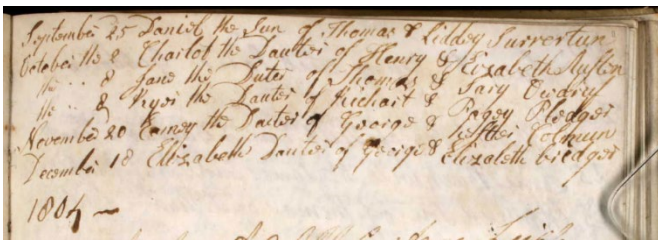 September 25 Daniel the Sun of Thomas & Liddey Surrertun
October the 8 Charlot the Dautter of Henry & Elizabeth Austen
the .. 8 Jane the Duter of Thomas & Sary
the .. 8 the Dauter of Richart & Pagey Pledger
November 20 the Dauter of George & Colmun
December 18 Elizabeth Dauter of George & Elizabeth bridger
1804 —